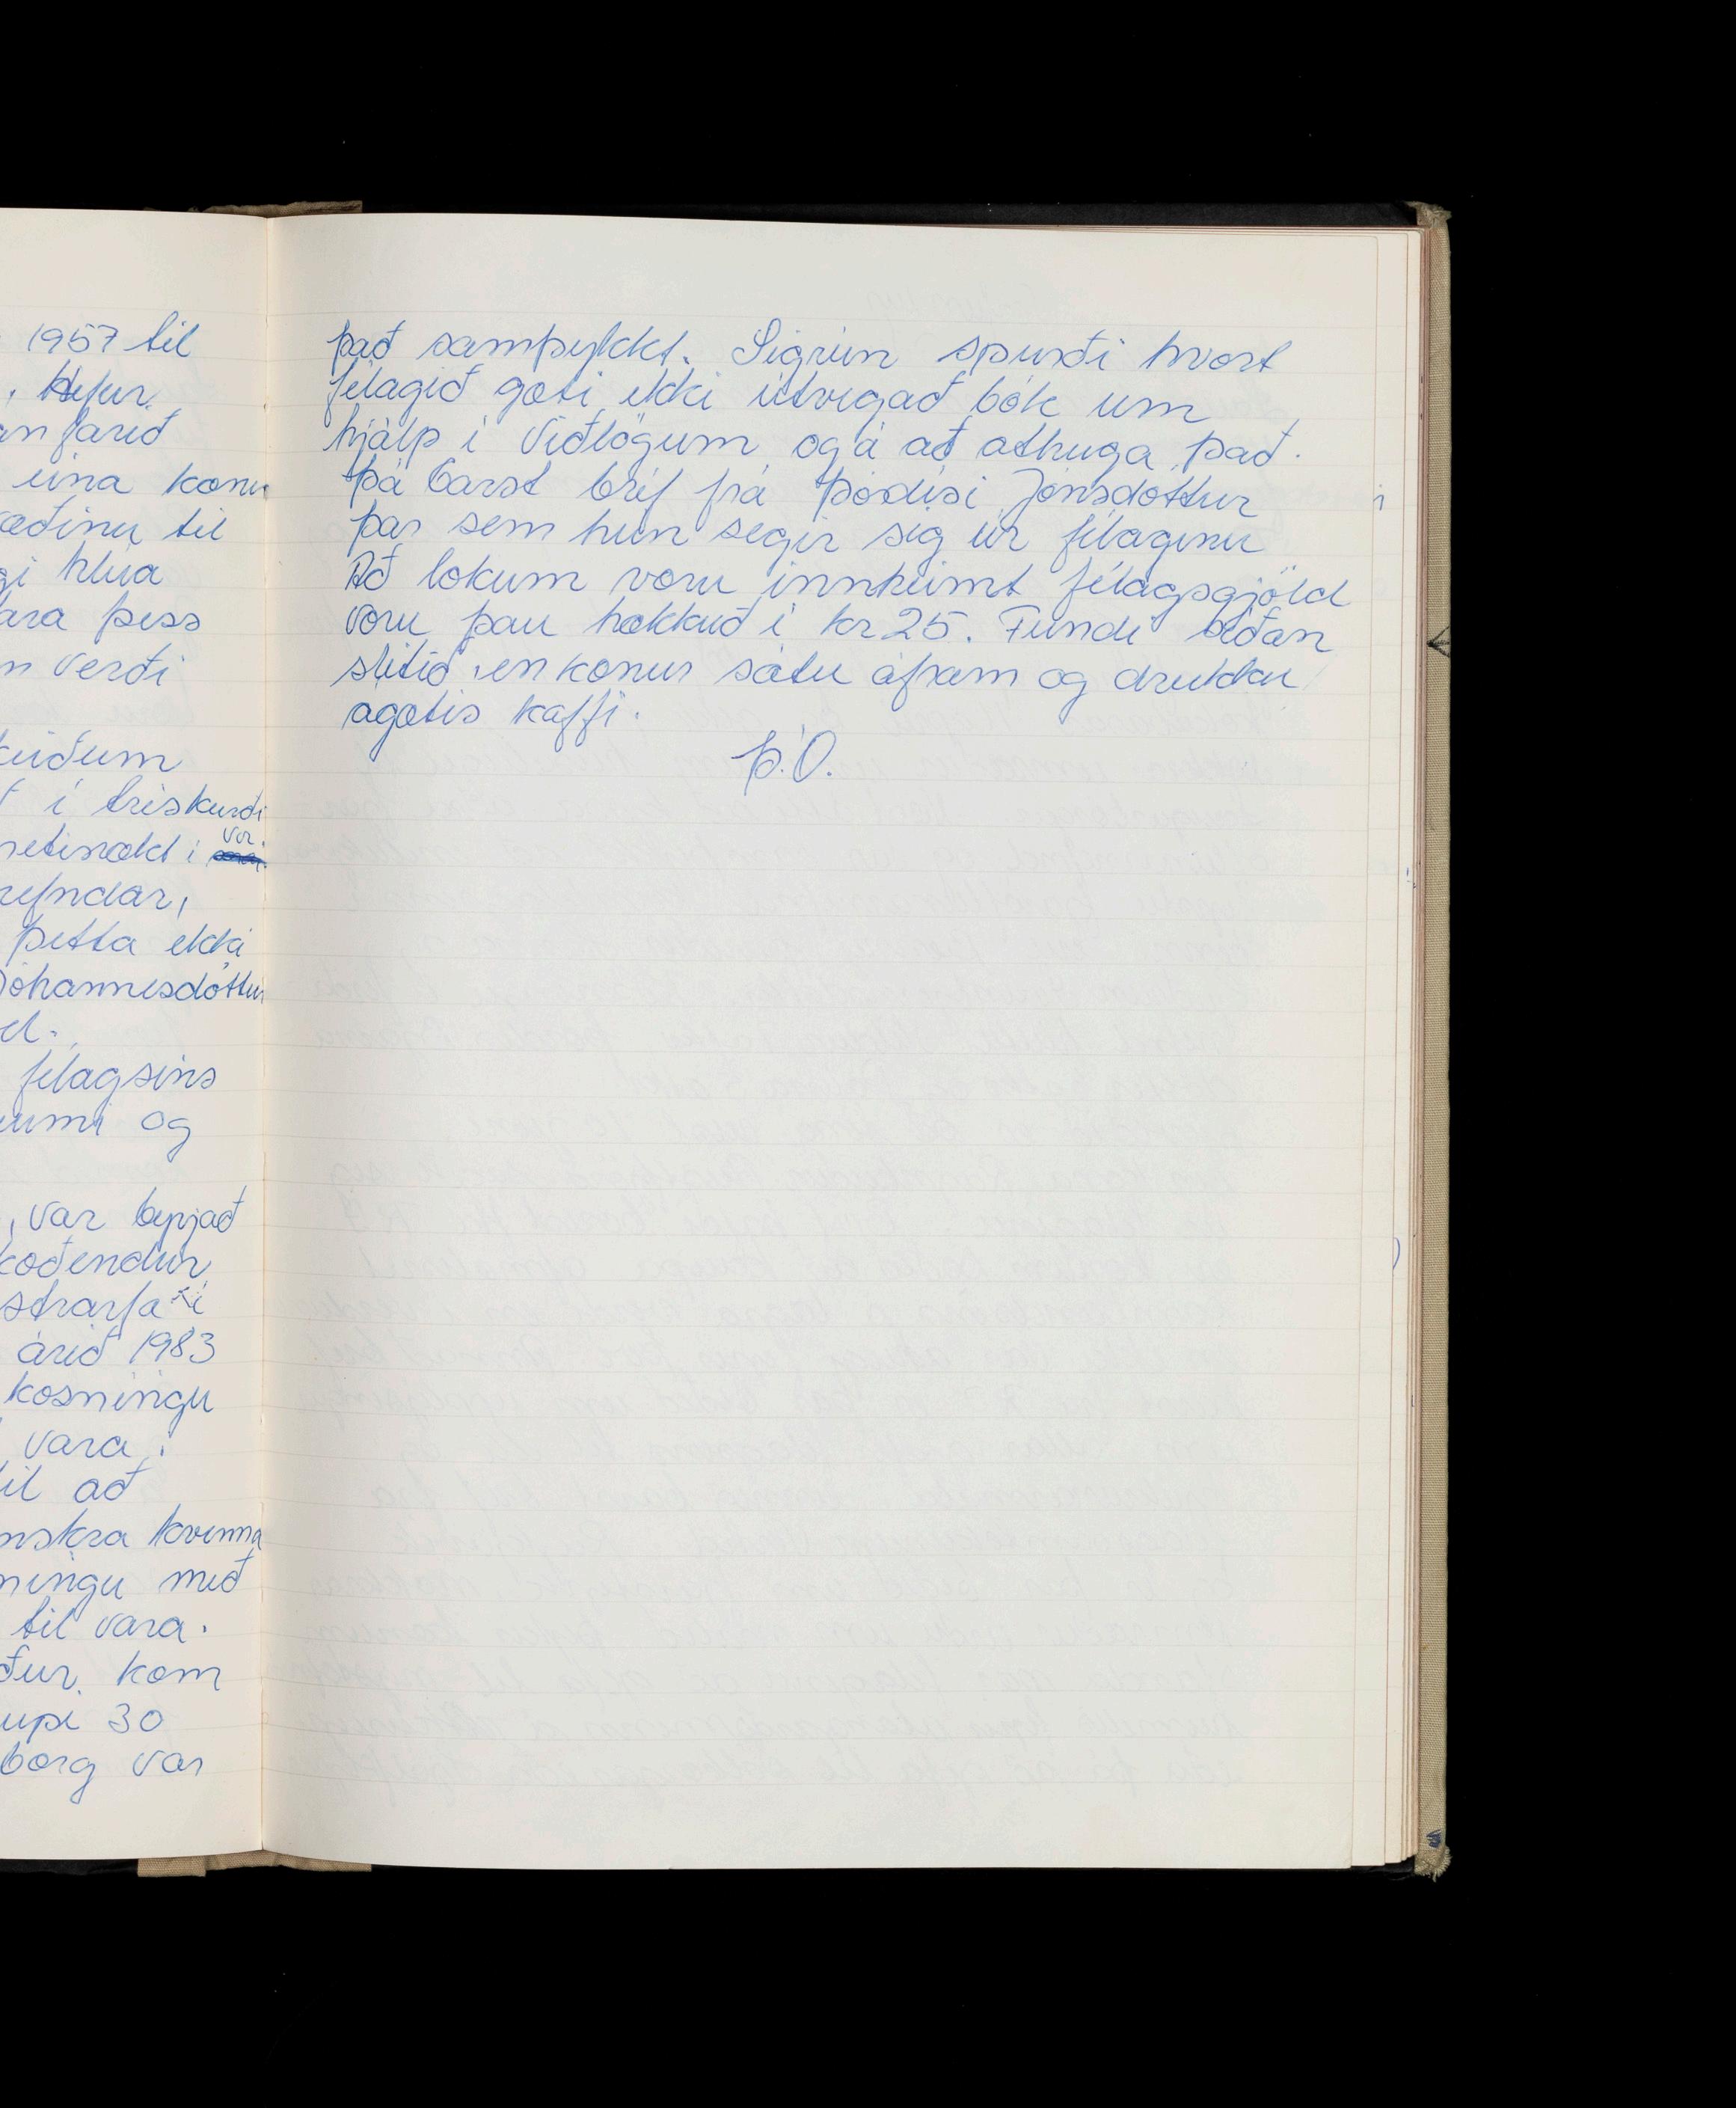 1957 til
, hefur
farið
eina konu
til
hlúa
þess
verði
í tréskurði
í vor.
þetta ekki
Jóhannesdóttur
félagsins
og
, var byrjað
í
árið 1983
kosningu
vara.
til að
kvenna
með
til vara.
kom
30
borg var
það samþykkt. Sigrún spurði hvort
félagið gæti ekki útvegað bók um
hjálp í viðlögum og á að athuga það.
Þá barst bréf frá Þórdísi Jónsdóttur
þar sem hún segir sig úr félaginu
Að lokum voru innheimt félagsgjöld
voru þau hækkuð í kr 25. Fundi síðan
slitið, en konur sátu áfram og drukku
ágætis kaffi.
Þ.Ó.